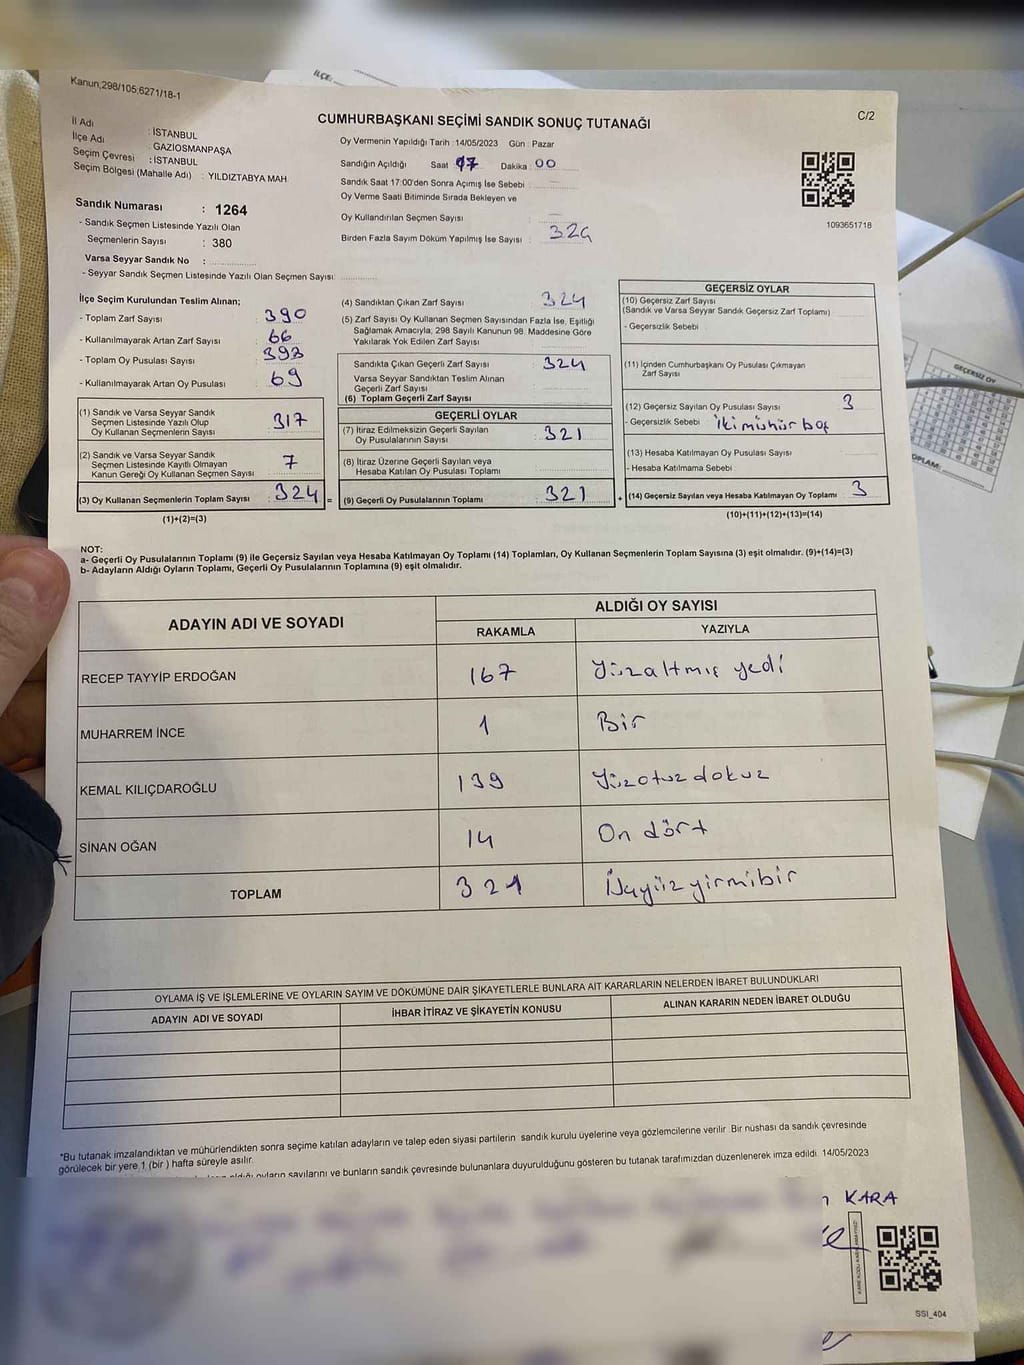 İLÇE:
Kanun;298/105;6271/18-1
C/2
CUMHURBAŞKANI SEÇİMİ SANDIK SONUÇ TUTANAĞI
İl Adı : İSTANBUL
İlçe Adı : GAZİOSMANPAŞA
Seçim Çevresi : İSTANBUL
Seçim Bölgesi (Mahalle Adı) : YILDIZTABYA MAH.
Oy Vermenin Yapıldığı Tarih :14/05/2023 Gün : Pazar
Sandığın Açıldığı Saat 17 Dakika : 00
Sandık Saat 17:00'den Sonra Açımış İse Sebebi :
Oy Verme Saati Bitiminde Sırada Bekleyen ve
Oy Kullandırılan Seçmen Sayısı :
Birden Fazla Sayım Döküm Yapılmış İse Sayısı : 324
1093651718
Sandık Numarası : 1264
- Sandık Seçmen Listesinde Yazılı Olan
Seçmenlerin Sayısı : 380
Varsa Seyyar Sandık No :
- Seyyar Sandık Seçmen Listesinde Yazılı Olan Seçmen Sayısı:
İlçe Seçim Kurulundan Teslim Alınan;
- Toplam Zarf Sayısı : 390
- Kullanılmayarak Artan Zarf Sayısı : 66
- Toplam Oy Pusulası Sayısı : 393
- Kullanılmayarak Artan Oy Pusulası : 69
(1) Sandık ve Varsa Seyyar Sandık
Seçmen Listesinde Yazılı Olup
Oy Kullanan Seçmenlerin Sayısı : 317
(2) Sandık ve Varsa Seyyar Sandık
Seçmen Listesinde Kayıtlı Olmayan
Kanun Gereği Oy Kullanan Seçmen Sayısı : 7
(3) Oy Kullanan Seçmenlerin Toplam Sayısı : 324 =
(1)+(2)=(3)
(4) Sandıktan Çıkan Zarf Sayısı : 324
(5) Zarf Sayısı Oy Kullanan Seçmen Sayısından Fazla İse, Eşitliği
Sağlamak Amacıyla; 298 Sayılı Kanunun 98. Maddesine Göre
Yakılarak Yok Edilen Zarf Sayısı :
Sandıkta Çıkan Geçerli Zarf Sayısı : 324
Varsa Seyyar Sandıktan Teslim Alınan
Geçerli Zarf Sayısı :
(6) Toplam Geçerli Zarf Sayısı
GEÇERLİ OYLAR
(7) İtiraz Edilmeksizin Geçerli Sayılan
Oy Pusulalarının Sayısı : 321
(8) İtiraz Üzerine Geçerli Sayılan veya
Hesaba Katılan Oy Pusulası Toplamı :
(9) Geçerli Oy Pusulalarının Toplamı : 321 +
GEÇERSİZ OYLAR
(10) Geçersiz Zarf Sayısı
(Sandık ve Varsa Seyyar Sandık Geçersiz Zarf Toplamı) :
- Geçersizlik Sebebi :
(11) İçinden Cumhurbaşkanı Oy Pusulası Çıkmayan
Zarf Sayısı :
(12) Geçersiz Sayılan Oy Pusulası Sayısı : 3
- Geçersizlik Sebebi : İki mühür
(13) Hesaba Katılmayan Oy Pusulası Sayısı :
- Hesaba Katılmama Sebebi :
(14) Geçersiz Sayılan veya Hesaba Katılmayan Oy Toplamı : 3
(10)+(11)+(12)+(13)=(14)
NOT:
a- Geçerli Oy Pusulalarının Toplamı (9) ile Geçersiz Sayılan veya Hesaba Katılmayan Oy Toplamı (14) Toplamları, Oy Kullanan Seçmenlerin Toplam Sayısına (3) eşit olmalıdır. (9)+(14)=(3)
b- Adayların Aldığı Oyların Toplamı, Geçerli Oy Pusulalarının Toplamına (9) eşit olmalıdır.
ADAYIN ADI VE SOYADI
ALDIĞI OY SAYISI
RAKAMLA YAZIYLA
RECEP TAYYİP ERDOĞAN 167 Yüzaltmış yedi
MUHARREM İNCE 1 Bir
KEMAL KILIÇDAROĞLU 139 Yüzotuzdokuz
SİNAN OĞAN 14 On dört
TOPLAM 321 Üçyüzyirmibir
OYLAMA İŞ VE İŞLEMLERİNE VE OYLARIN SAYIM VE DÖKÜMÜNE DAİR ŞİKAYETLERLE BUNLARA AİT KARARLARIN NELERDEN İBARET BULUNDUKLARI
ADAYIN ADI VE SOYADI
İHBAR İTİRAZ VE ŞİKAYETİN KONUSU
ALINAN KARARIN NEDEN İBARET OLDUĞU
*Bu tutanak imzalandıktan ve mühürlendikten sonra seçime katılan adayların ve talep eden siyasi partilerin sandık kurulu üyelerine veya gözlemcilerine verilir. Bir nüshası da sandık çevresinde
görülecek bir yere 1 (bir ) hafta süreyle asılır.
oyların sayılarını ve bunların sandık çevresinde bulunanlara duyurulduğunu gösteren bu tutanak tarafımızdan düzenlenerek imza edildi. 14/05/2023
KARA
SSI_404
GEÇERSİZ OY
TOPLAM: